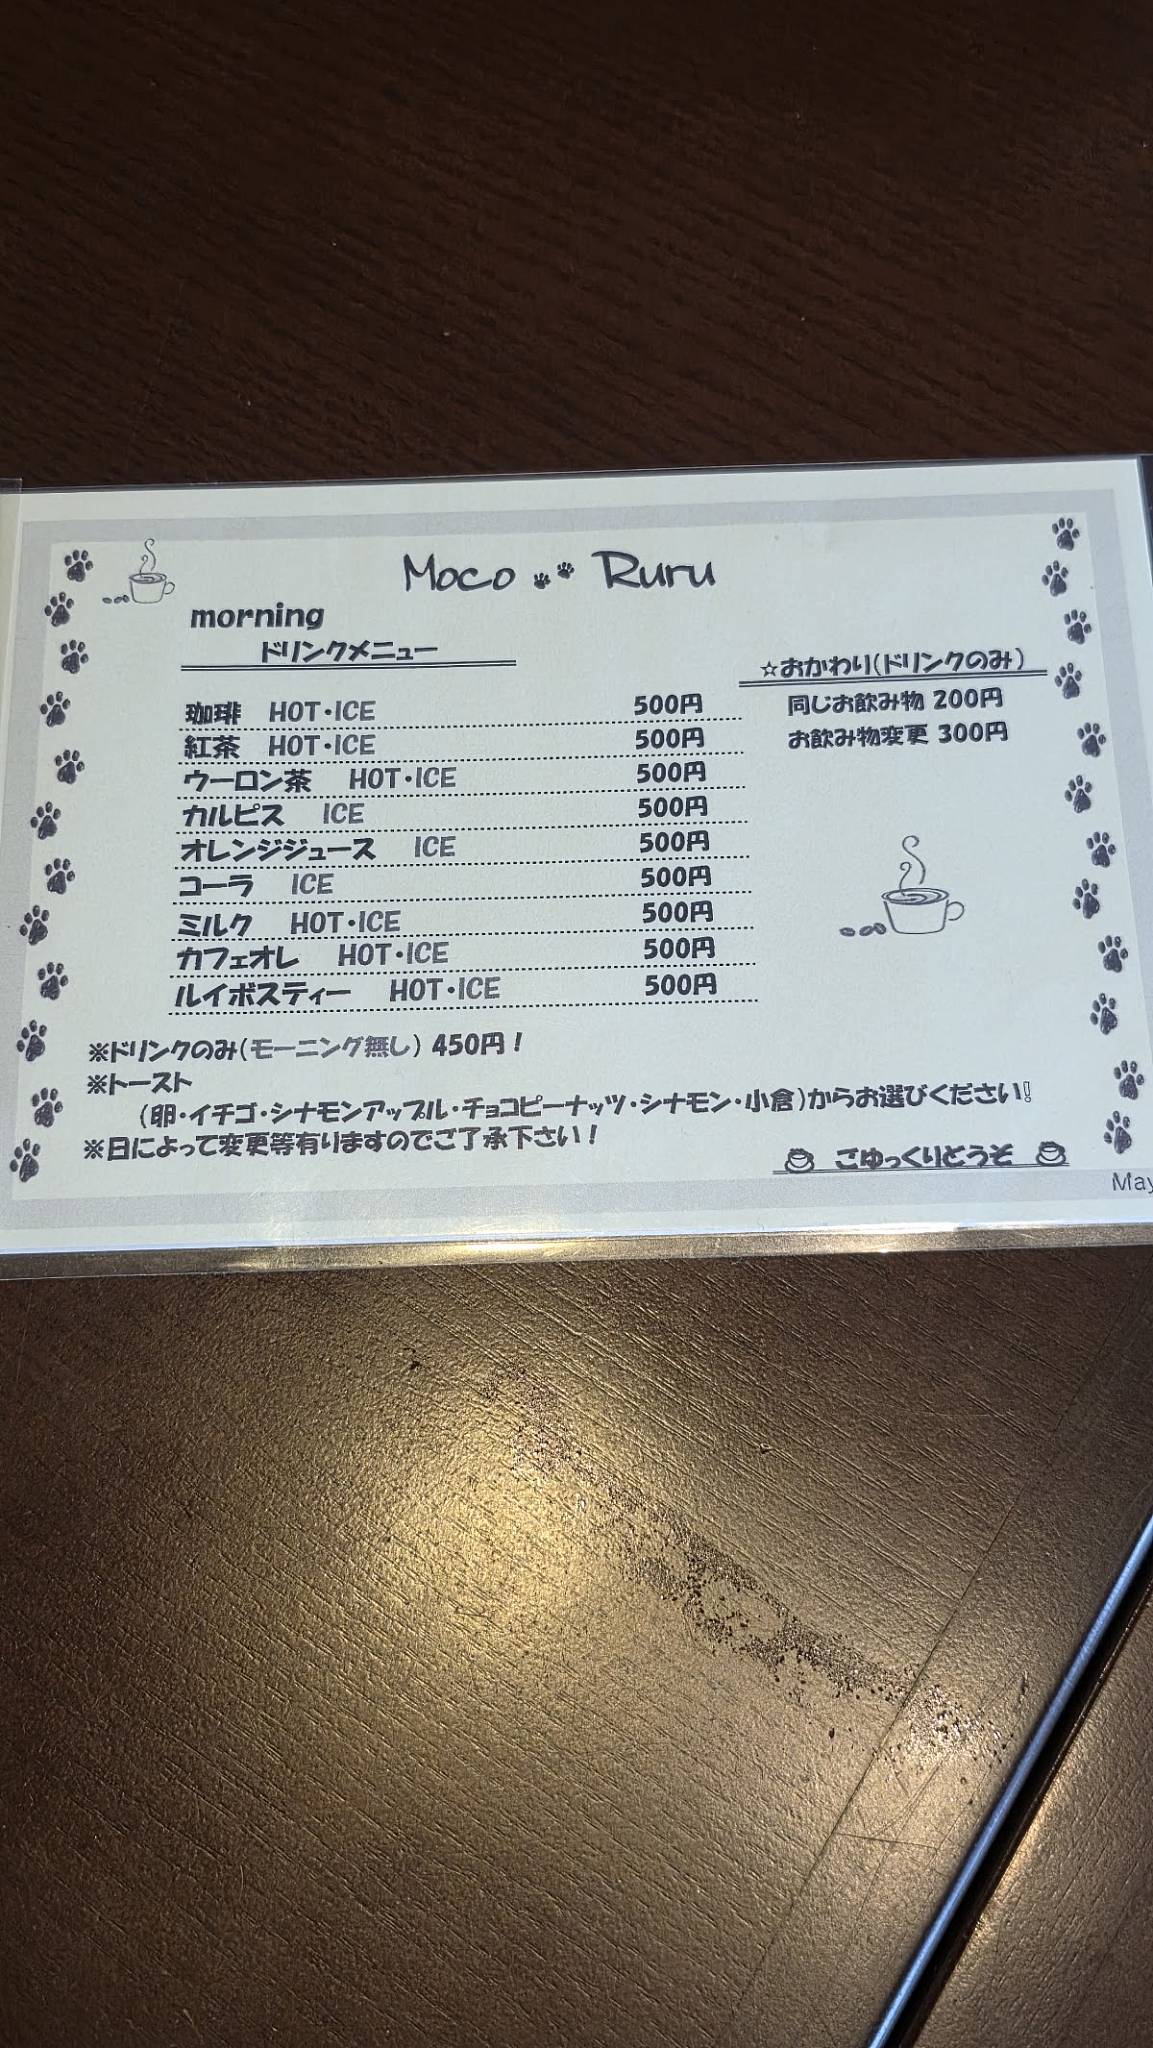 Moco Ruru
morning
ドリンクメニュー
珈琲 HOT・ICE 500円
紅茶 HOT・ICE 500円
ウーロン茶 HOT・ICE 500円
カルピス ICE 500円
オレンジジュース ICE 500円
コーラ ICE 500円
ミルク HOT・ICE 500円
カフェオレ HOT・ICE 500円
ルイボスティー HOT・ICE 500円
☆おかわり(ドリンクのみ)
同じお飲み物 200円
お飲み物変更 300円
※ドリンクのみ(モーニング無し) 450円!
※トースト
(卵・イチゴ・シナモンアップル・チョコピーナッツ・シナモン・小倉)からお選びください!
※日によって変更等有りますのでご了承下さい!
ごゆっくりどうぞ
May